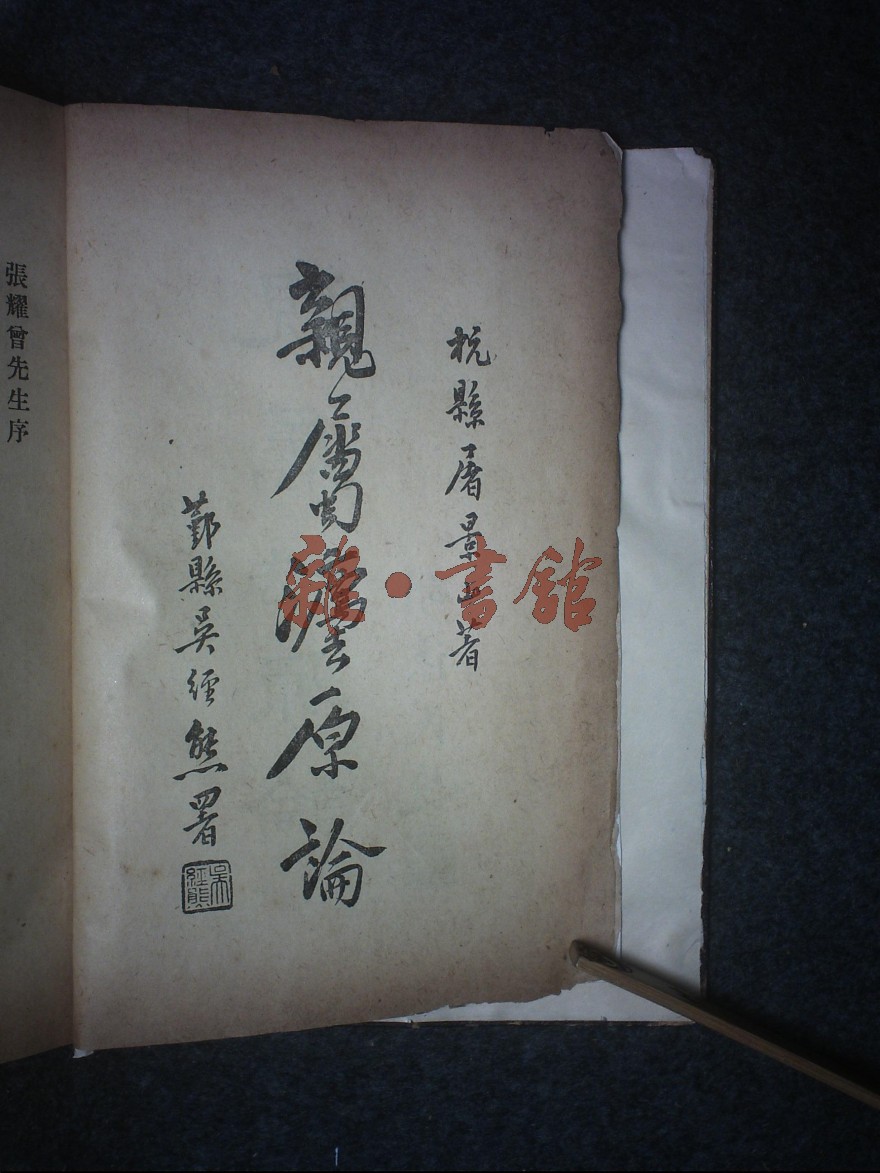 杭縣屠景山著
親屬灋原論
鄞縣吳經熊署
吳經熊
張耀曾先生序
雜·書館